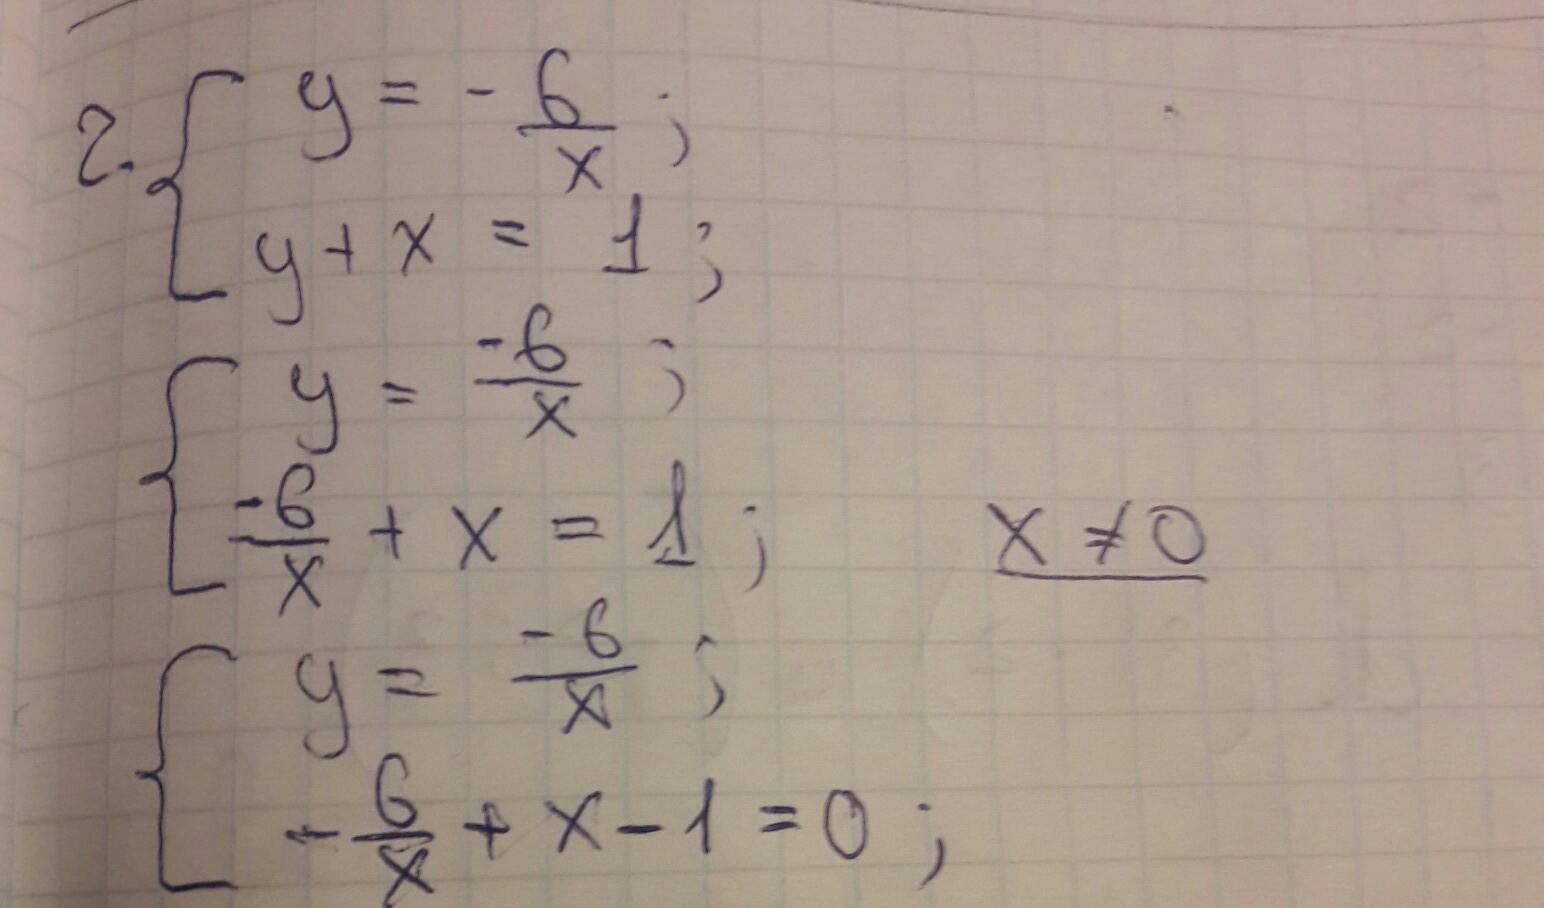 2. { y = - 6/x ;
y + x = 1 ;
{ y = -6/x ;
-6/x + x = 1 ; x ≠ 0
{ y = -6/x ;
- 6/x + x - 1 = 0 ;